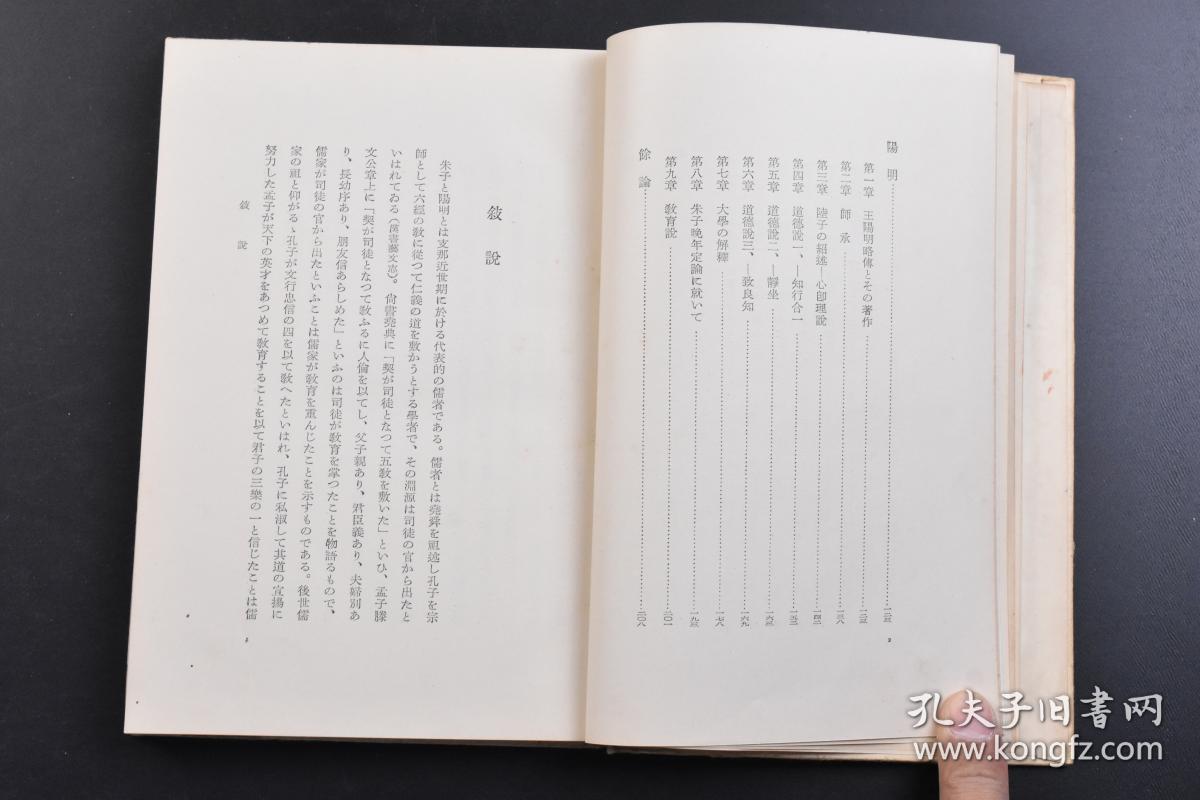 陽明……一二三
第一章 王陽明略傳とその著作……一二三
第二章 師承……一三八
第三章 陸子の紹述―心卽理說……一四二
第四章 道德說一、―知行合一……一五二
第五章 道德說二、―靜坐……一六三
第六章 道德說三、―致良知……一六九
第七章 大學の解釋……一七八
第八章 朱子晚年定論に就いて……一九三
第九章 敎育說……二〇一
餘論……二〇八
2
敍說
朱子と陽明とは支那近世期に於ける代表的の儒者である。儒者とは堯舜を祖述し孔子を宗
師として六經の敎に從つて仁義の道を敷かうとする學者で、その淵源は司徒の官から出たと
いはれてゐる（漢書藝文志）。尙書堯典に「契が司徒となつて五敎を敷いた」といひ、孟子滕
文公章上に「契が司徒となつて敎ふるに人倫を以てし、父子親あり、君臣義あり、夫婦別あ
り、長幼序あり、朋友信あらしめた」といふのは司徒が敎育を掌つたことを物語るもので、
儒家が司徒の官から出たといふことは儒家が敎育を重んじたことを示すものである。後世儒
家の祖と仰がるゝ孔子が文行忠信の四を以て敎へたといはれ、孔子に私淑して其道の宣揚に
努力した孟子が天下の英才をあつめて敎育することを以て君子の三樂の一と信じたことは儒
敍說
孔夫子旧书网
www.kongfz.com